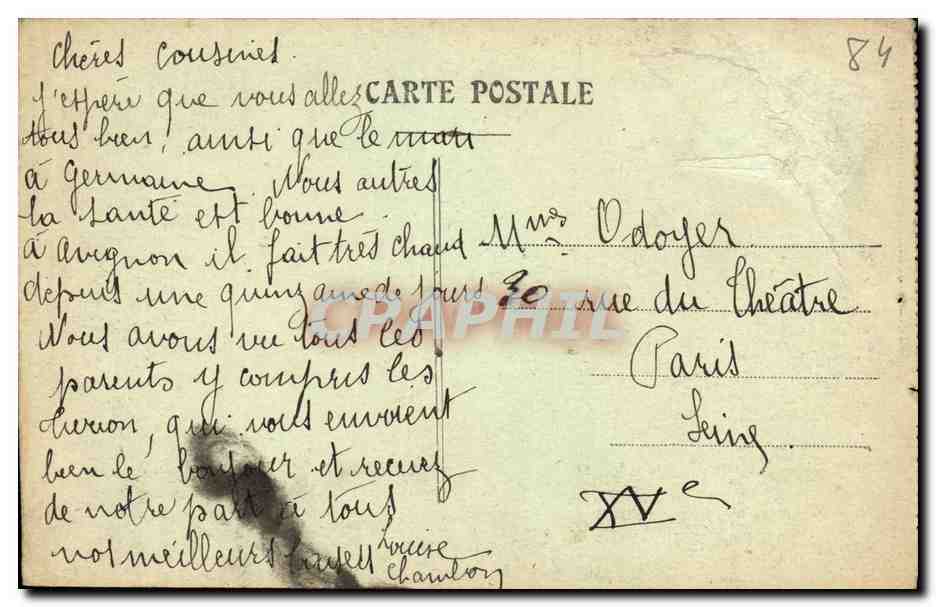 84
CARTE POSTALE
Chères cousines.
J'espère que vous allez
tous bien, ainsi que le mari
à Germaine. Nous autres
la santé est bonne
à Avignon il fait très chaud
depuis une quinzaine de jours
Nous avons vu tous les
parents y compris les
qui vous envoient
bien le bonjour et recevez
de notre part à tous
nos meilleurs baisers
Louise
Chambon
Mmes Odoyer
30 rue du Théâtre
Paris
Seine
XVe
CPAPHIL